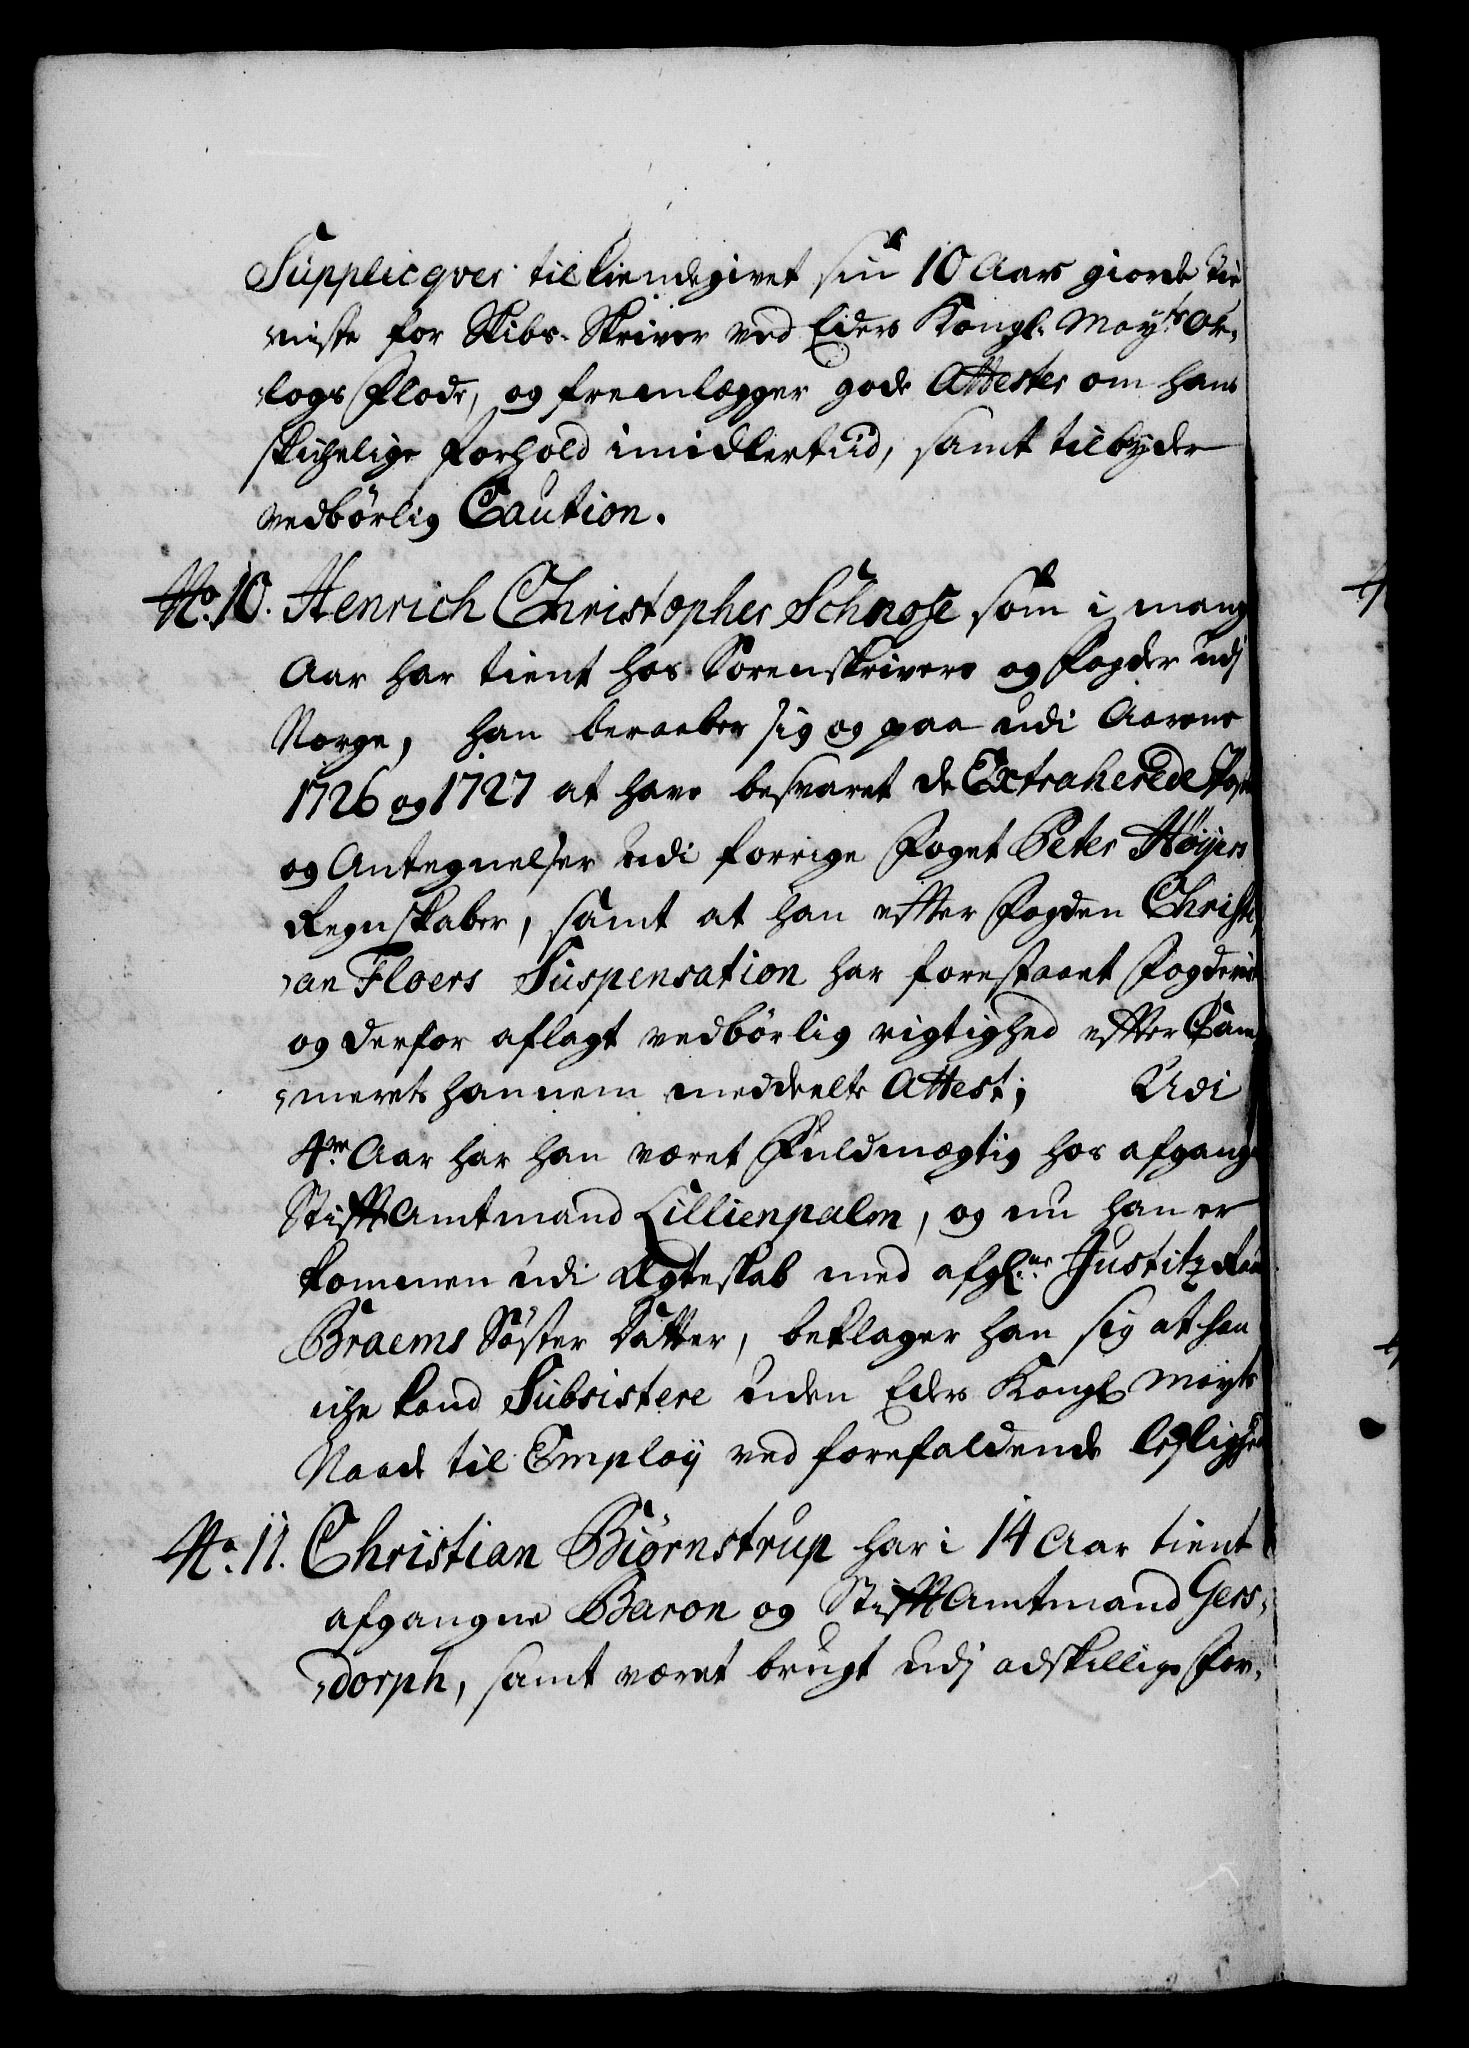 Supplicqver tilkiendegivet sin 10 Aars giorde tie
niste for Skibs-Skriver ved Eders Kongl: Mayts Or,
logs Flode, og fremlægger gode Attester om hans
skichelige Forhold imidlertiid, samt tilbyder
vedbörlig Caution.
No. 10. Henrich Christopher Schnose som i mang
Aar har tient hos Sorenskrivere og Fogder udj
Norge, han beraaber sig og paa udi Aarene
1726 og 1727 at have besvaret de Extraherede Post
og Antegnelser udi forrige Foget Peter Höÿers
Regnskaber, samt at han effter Fogden Christi
an Floers Suspensation har forestaaet Fogderiet
og derfor aflagt vedbörlig rigtighed effter Cam
merets hannem meddeelte Attest; Udi
4re Aar har han været Fuldmægtig hos afgangne
StifftAmtmand Lillienpalm, og nu han er
kommen udi Ægteskab med afgl:ne Justitz Raad
Braems Söster Datter, beklager han sig at han
iche kand Subsistere uden Eders Kongl Mayts
Naade til Employ ved forefaldende leylighed
No. 11. Christian Biørnstrup har i 14 Aar tient
afgangne Baron og StifftAmtmand Gers,
dorph, samt været brugt udj adskillige For,